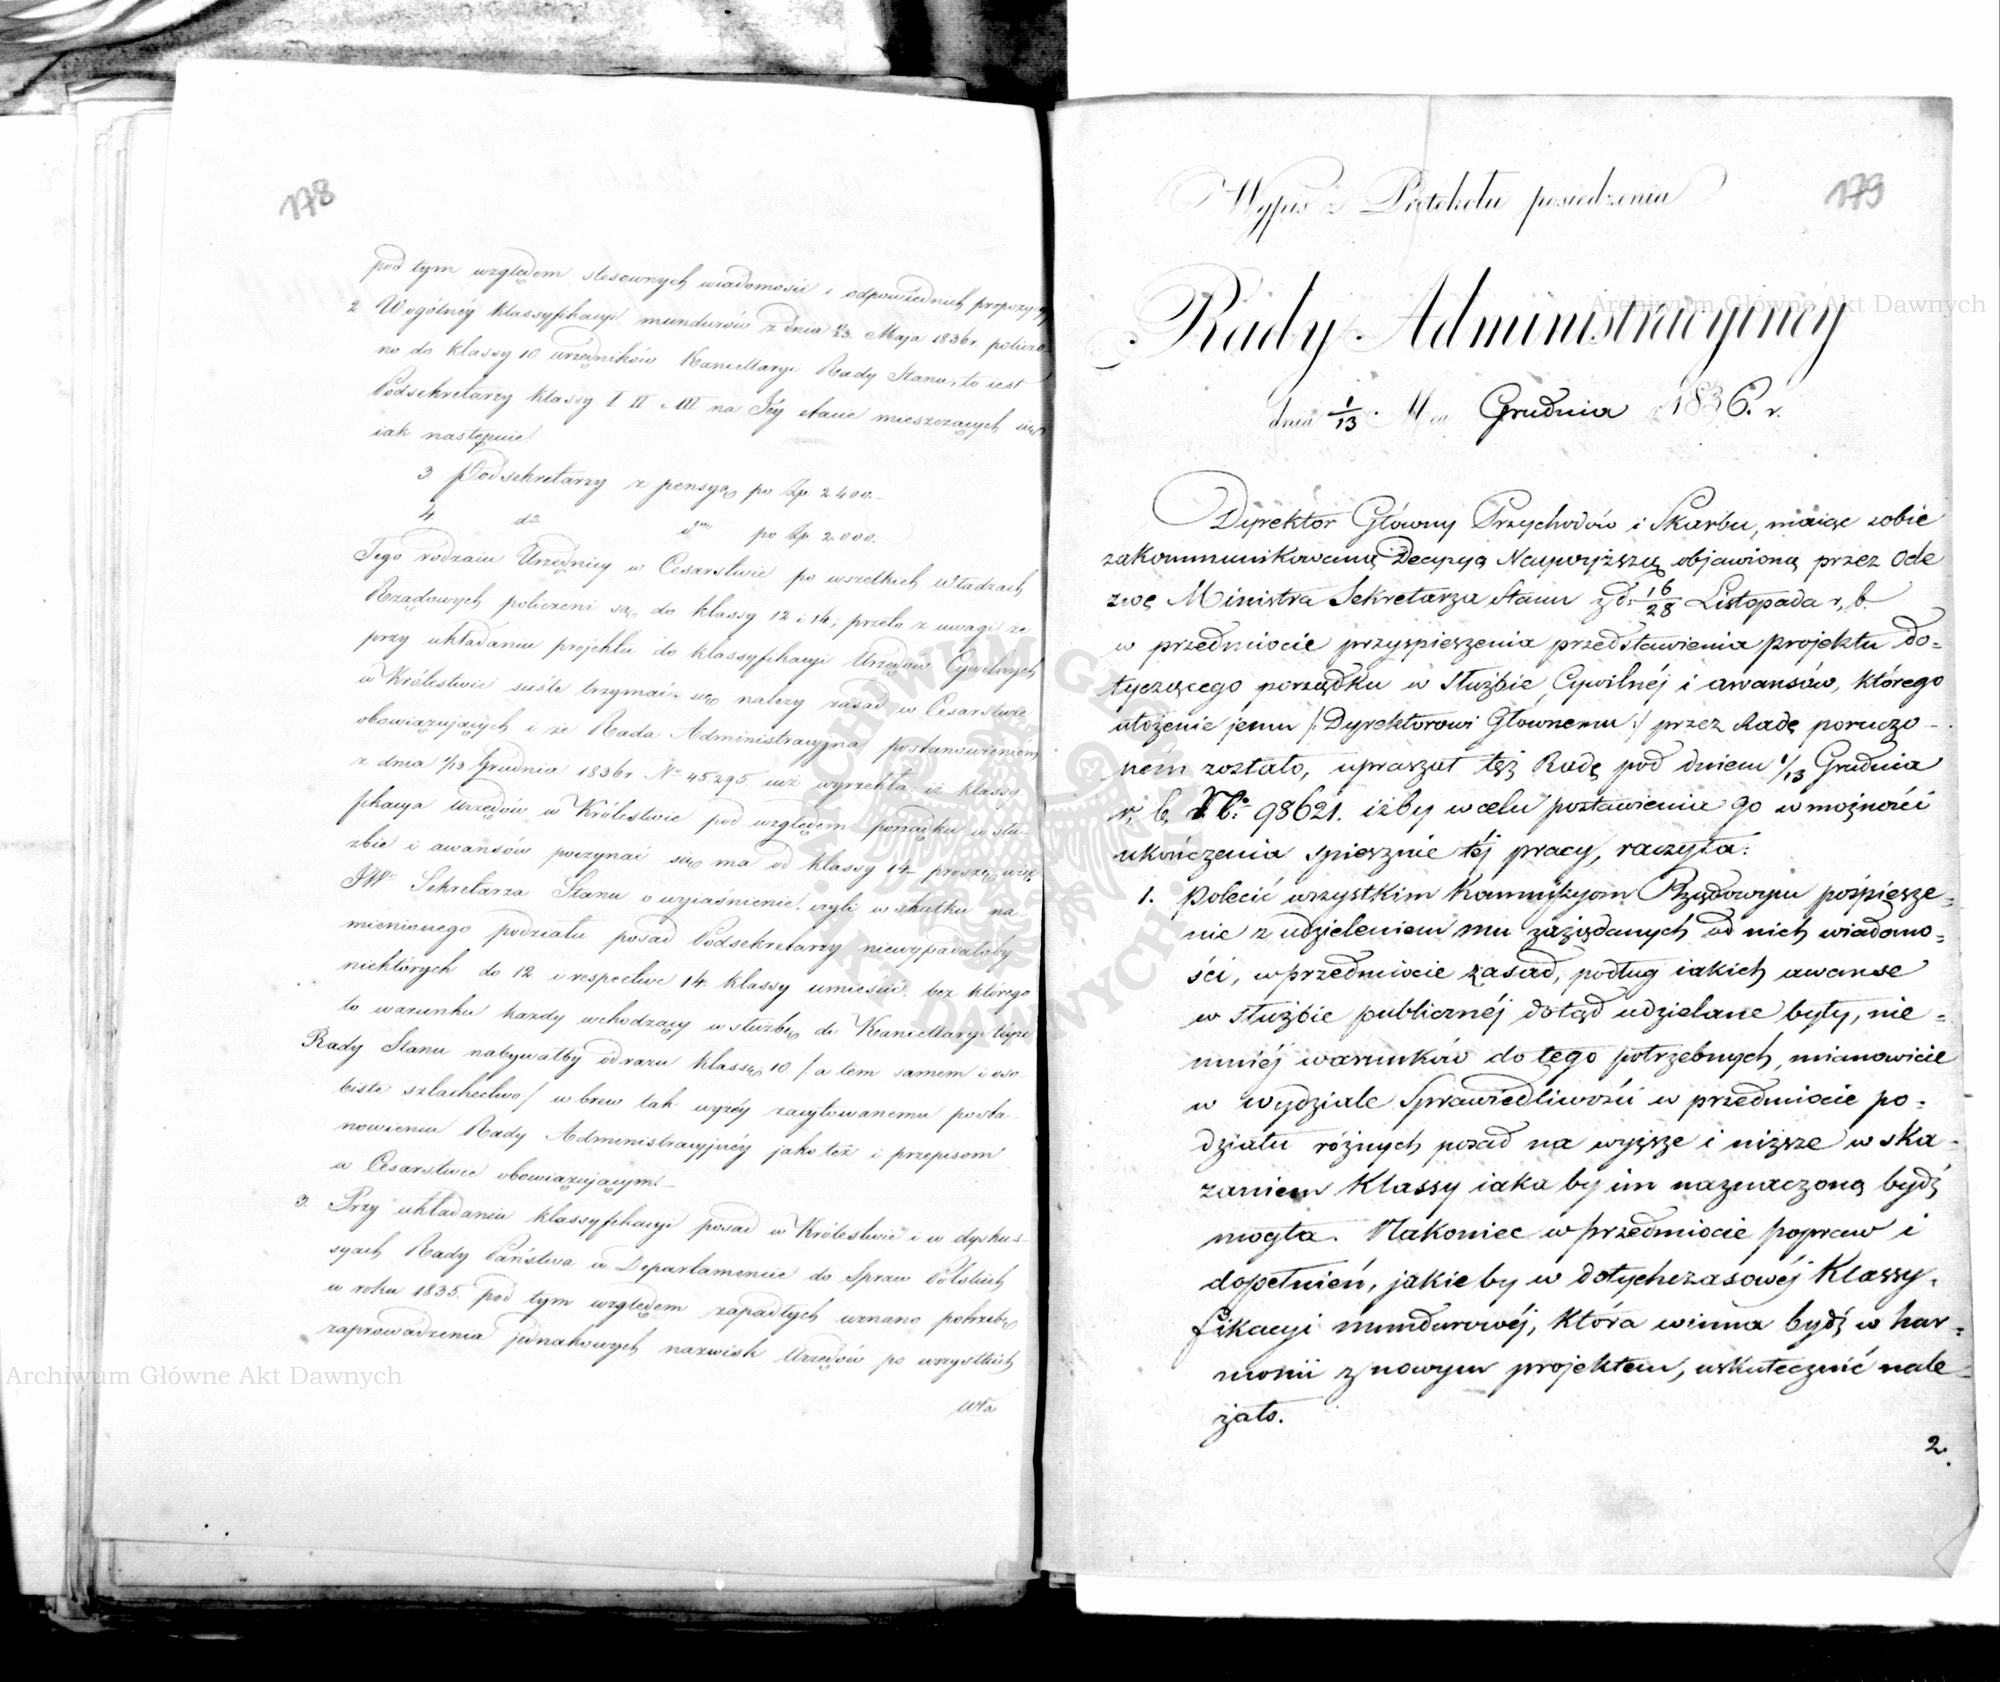 178
pod tym względem stosownych wiadomości i odpowiednich propozycyj
2. W ogólnéy klassyfikacyi mundurów z dnia Maja 1836 r. policzo
no do klassy 10 urzędników Kancellaryi Rady Stanu, to iest
Podsekretarzy klassy I II i III na Jéy etacie mieszczących się
iak następuie:
3 Podsekretarzy z pensyą po Zp. 2400.
4. dº dº po Zp. 2.000.
Tego rodzaiu Urzędnicy w Cesarstwie po wszelkich Władzach
Rządowych policzeni są do klassy 12 i 14; przeto z uwagi że
przy układaniu projektu do klassyfikacyi Urzędów Cywilnych
w Królestwie ściśle trzymać się należy zasad w Cesarstwie
obowiązujących i że Rada Administracyjna postanowieniem
z dnia 1/13 Grudnia 1836 r. Nº 45295. już wyrzekła, iż klassy
fikacya urzędów w Królestwie pod względem porządku w słu-
żbie i awansów poczynać się ma od klassy 14. proszę więc
JW. Sekretarza Stanu o wyiaśnienie, czyli w skutku na-
mienionego podziału posad Podsekretarzy niewypadałoby
niektórych do 12 i respective 14. klassy umieścić, bez którego
to warunku każdy wchodzący w służbę do Kancellaryi téyże
Rady Stanu nabywałby odrazu klassę 10 /: a tem samem i oso-
biste szlachectwo :/ wbrew tak wyżéy zacytowanemu posta-
nowieniu Rady Administracyjnéy jako też i przepisom
w Cesarstwie obowiązującym.
3. Przy układaniu klassyfikacyi posad w Królestwie i w dysku-
syach Rady Państwa w Departamencie do Spraw Polskich
w roku 1835. pod tym względem zapadłych uznano potrzebę
zaprowadzenia jednakowych nazwisk Urzędów po wszystkich
wła
179
Wypis z Protokołu posiedzenia
Rady Administracyjnéy
dnia 1/13. Mca Grudnia 1836. r.
Dyrektor Główny Przychodów i Skarbu, maiąc sobie
zakommunikowaną Decyzyą Naywyższą objawioną przez Ode
zwę Ministra Sekretarza Stanu z d. 16/28 Listopada r. b.
w przedmiocie przyspieszenia przedstawienia projektu do=
tyczącego porządku w służbie Cywilnéj i awansów, którego
ułożenie jemu /: Dyrektorowi Głównemu :/ przez Radę poruczo-
ném zostało, upraszał téż Radę pod dniem 1/13 Grudnia
r. b. Nº 98621. iżby w celu postawienia go w możności
ukończenia spiesznie téj pracy, raczyła:
1. Polecić wszystkim Kommissyom Rządowym pośpiesze-
nie z udzieleniem mu zażądanych od nich wiadomo=
ści, w przedmiocie zasad, podług iakich awanse
w służbie publicznéj dotąd udzielane były, nie=
mniéj warunków do tego potrzebnych, mianowicie
w wydziale Sprawiedliwości w przedmiocie po=
działu różnych posad na wyższe i niższe w ska-
zaniem Klassy iaka by im naznaczoną bydź
mogła. Nakoniec w przedmiocie popraw i
dopełnień, jakie by w dotychczasowéj Klassy-
fikacyi mundurowéj, która winna bydź w har=
monii z nowym projektem, uskutecznić nale=
żało.
2.
Archiwum Główne Akt Dawnych
Archiwum Główne Akt Dawnych
ARCHIWUM GŁÓWNE AKT DAWNYCH